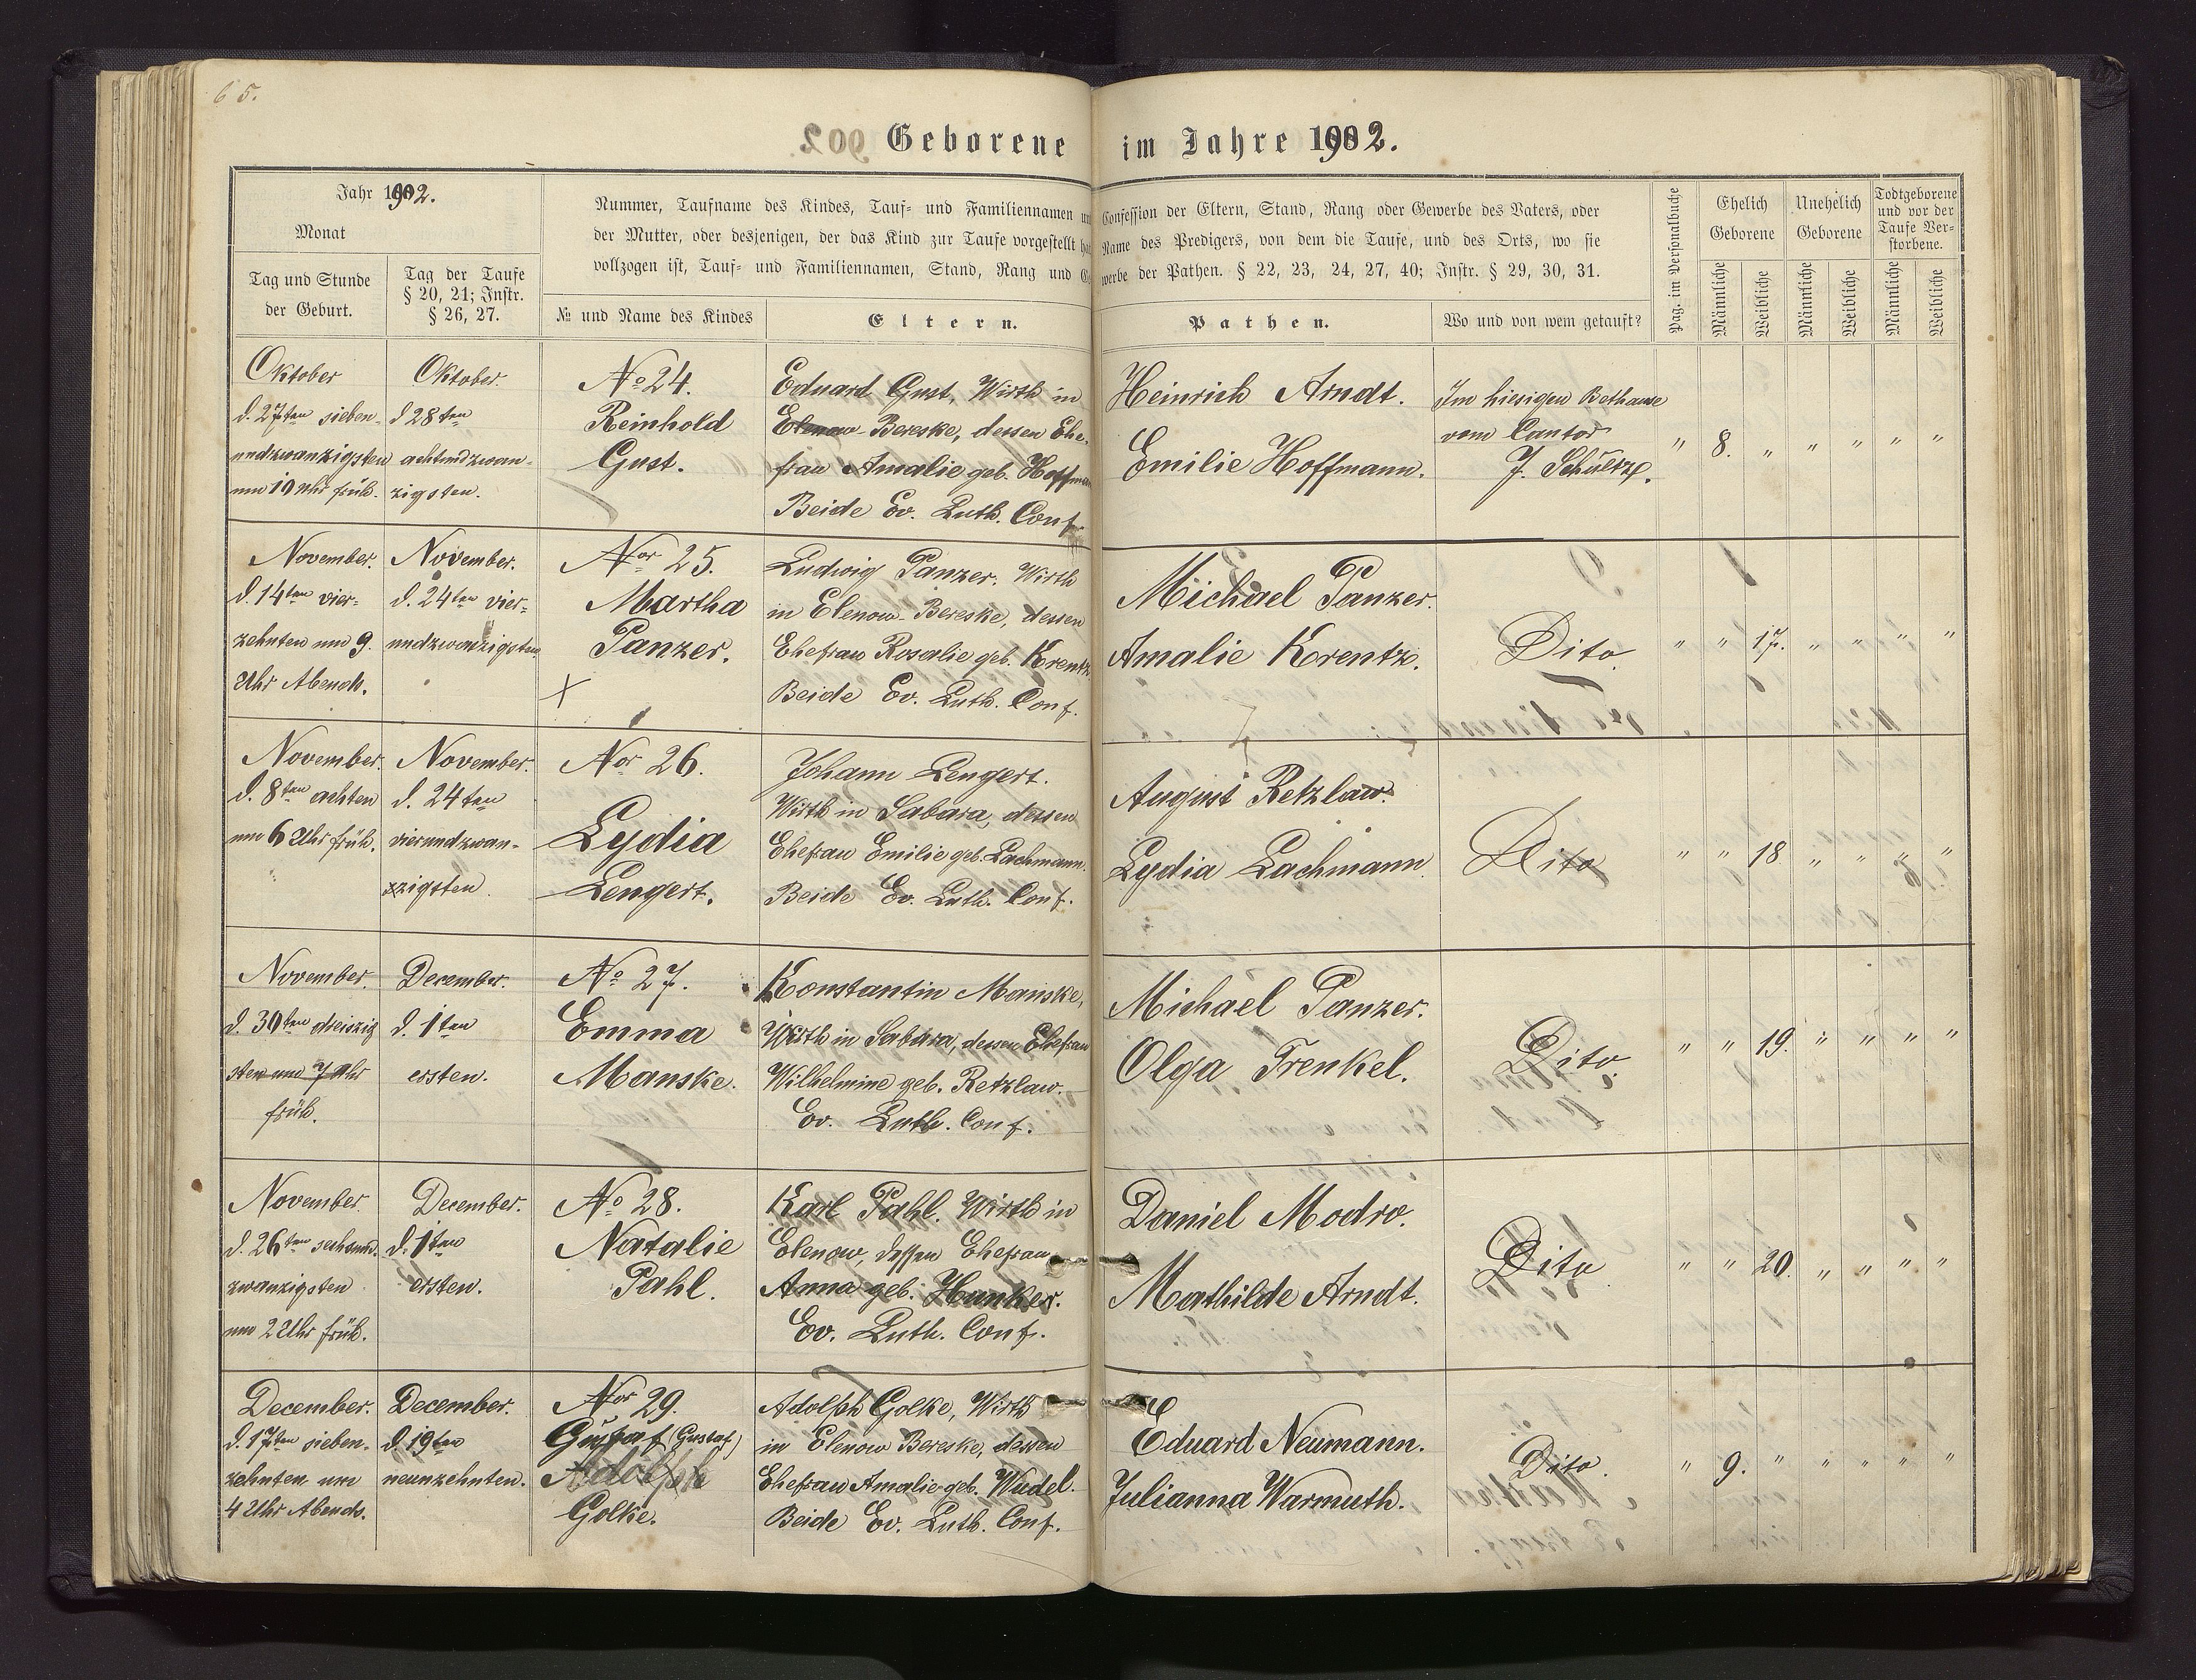 65.
Geborene im Jahre 1902.
Jahr 1902.
Monat
Tag und Stunde
der Geburt.
Tag der Taufe
§ 20, 21; Instr.
§ 26, 27.
Nummer, Taufname des Kindes, Tauf- und Familiennamen und Confession der Eltern, Stand, Rang oder Gewerbe des Vaters, oder
der Mutter, oder desjenigen, der das Kind zur Taufe vorgestellt hat Name des Predigers, von dem die Taufe, und des Orts, wo sie
vollzogen ist, Tauf- und Familiennamen, Stand, Rang und Gewerbe der Pathen. § 22, 23, 24, 27, 40; Instr. § 29, 30, 31.
№ und Name des Kindes
Eltern.
Pathen.
Wo und von wem getauft?
Pag. im Personalbuche
Ehelich
Geborene
Unehelich
Geborene
Todtgeborene
und vor der
Taufe Ver-
storbene.
Männliche
Weibliche
Männliche
Weibliche
Männliche
Weibliche
Oktober
d. 27ten sieben-
undzwanzigsten
um 10 Uhr früh.
Oktober.
d 28ten
achtundzwan-
zigsten.
No 24.
Reinhold
Gust.
Eduard Gust, Wirth in
Elenow-Bereske, dessen Ehe-
frau Amalie geb. Hoffman
Beide Ev. Luth. Conf.
Heinrich Arndt.
Emilie Hoffmann.
Im hiesigen Bethause
vom Cantor
J. Schültze.
" 8. " " " " "
November.
d. 14ten vier-
zehnten um 9.
Uhr Abends.
November.
d. 24ten vier-
undzwanzigsten
Nor 25.
Martha
Panzer.
Ludwig Panzer. Wirth
in Elenow-Bereske, dessen
Ehefrau Rosalie geb. Krentz
Beide Ev. Luth. Conf.
Michael Panzer.
Amalie Krentz.
Dito.
" " 17. " " " "
November.
d. 8ten achten
um 6 Uhr früh.
November.
d. 24ten
vierundzwan-
zzigsten.
Nor 26.
Lydia
Lengert.
Johann Lengert.
Wirth in Sabara, dessen
Ehefrau Emilie geb. Lachmann.
Beide Ev. Luth. Conf.
August Retzlaw.
Lydia Lachmann.
Dito
" " 18 " " " "
November.
d. 30ten dreiszig
sten um 7 Uhr
früh.
December.
d. 1ten
ersten.
No 27.
Emma
Manske.
Konstantin Manske,
Wirth in Sabara, dessen Ehefrau
Wilhelmine geb. Retzlaw.
Ev. Luth. Conf.
Michael Panzer.
Olga Frenkel.
Dito.
" " 19. " " " "
November.
d. 26ten sechsund-
zwanzigsten
um 2 Uhr früh.
December.
d. 1ten
ersten.
No 28.
Natalie
Pahl.
Karl Pahl. Wirth in
Elenow, dessen Ehefrau
Anna geb. Hunker.
Ev. Luth. Conf.
Daniel Modro.
Mathilde Arndt.
Dito
" " 20. " " " "
December.
d. 17ten sieben-
zehnten um
4 Uhr Abends.
December.
d. 19ten
neunzehnten.
Nor 29.
Gustaf (Gustaf)
Adolph
Golke.
Adolph Golke, Wirth
in Elenow Bereske, dessen
Ehefrau Amalie geb. Wudel.
Beide Ev. Luth. Conf.
Eduard Neumann.
Julianna Warmuth.
Dito.
" 9. " " " " "